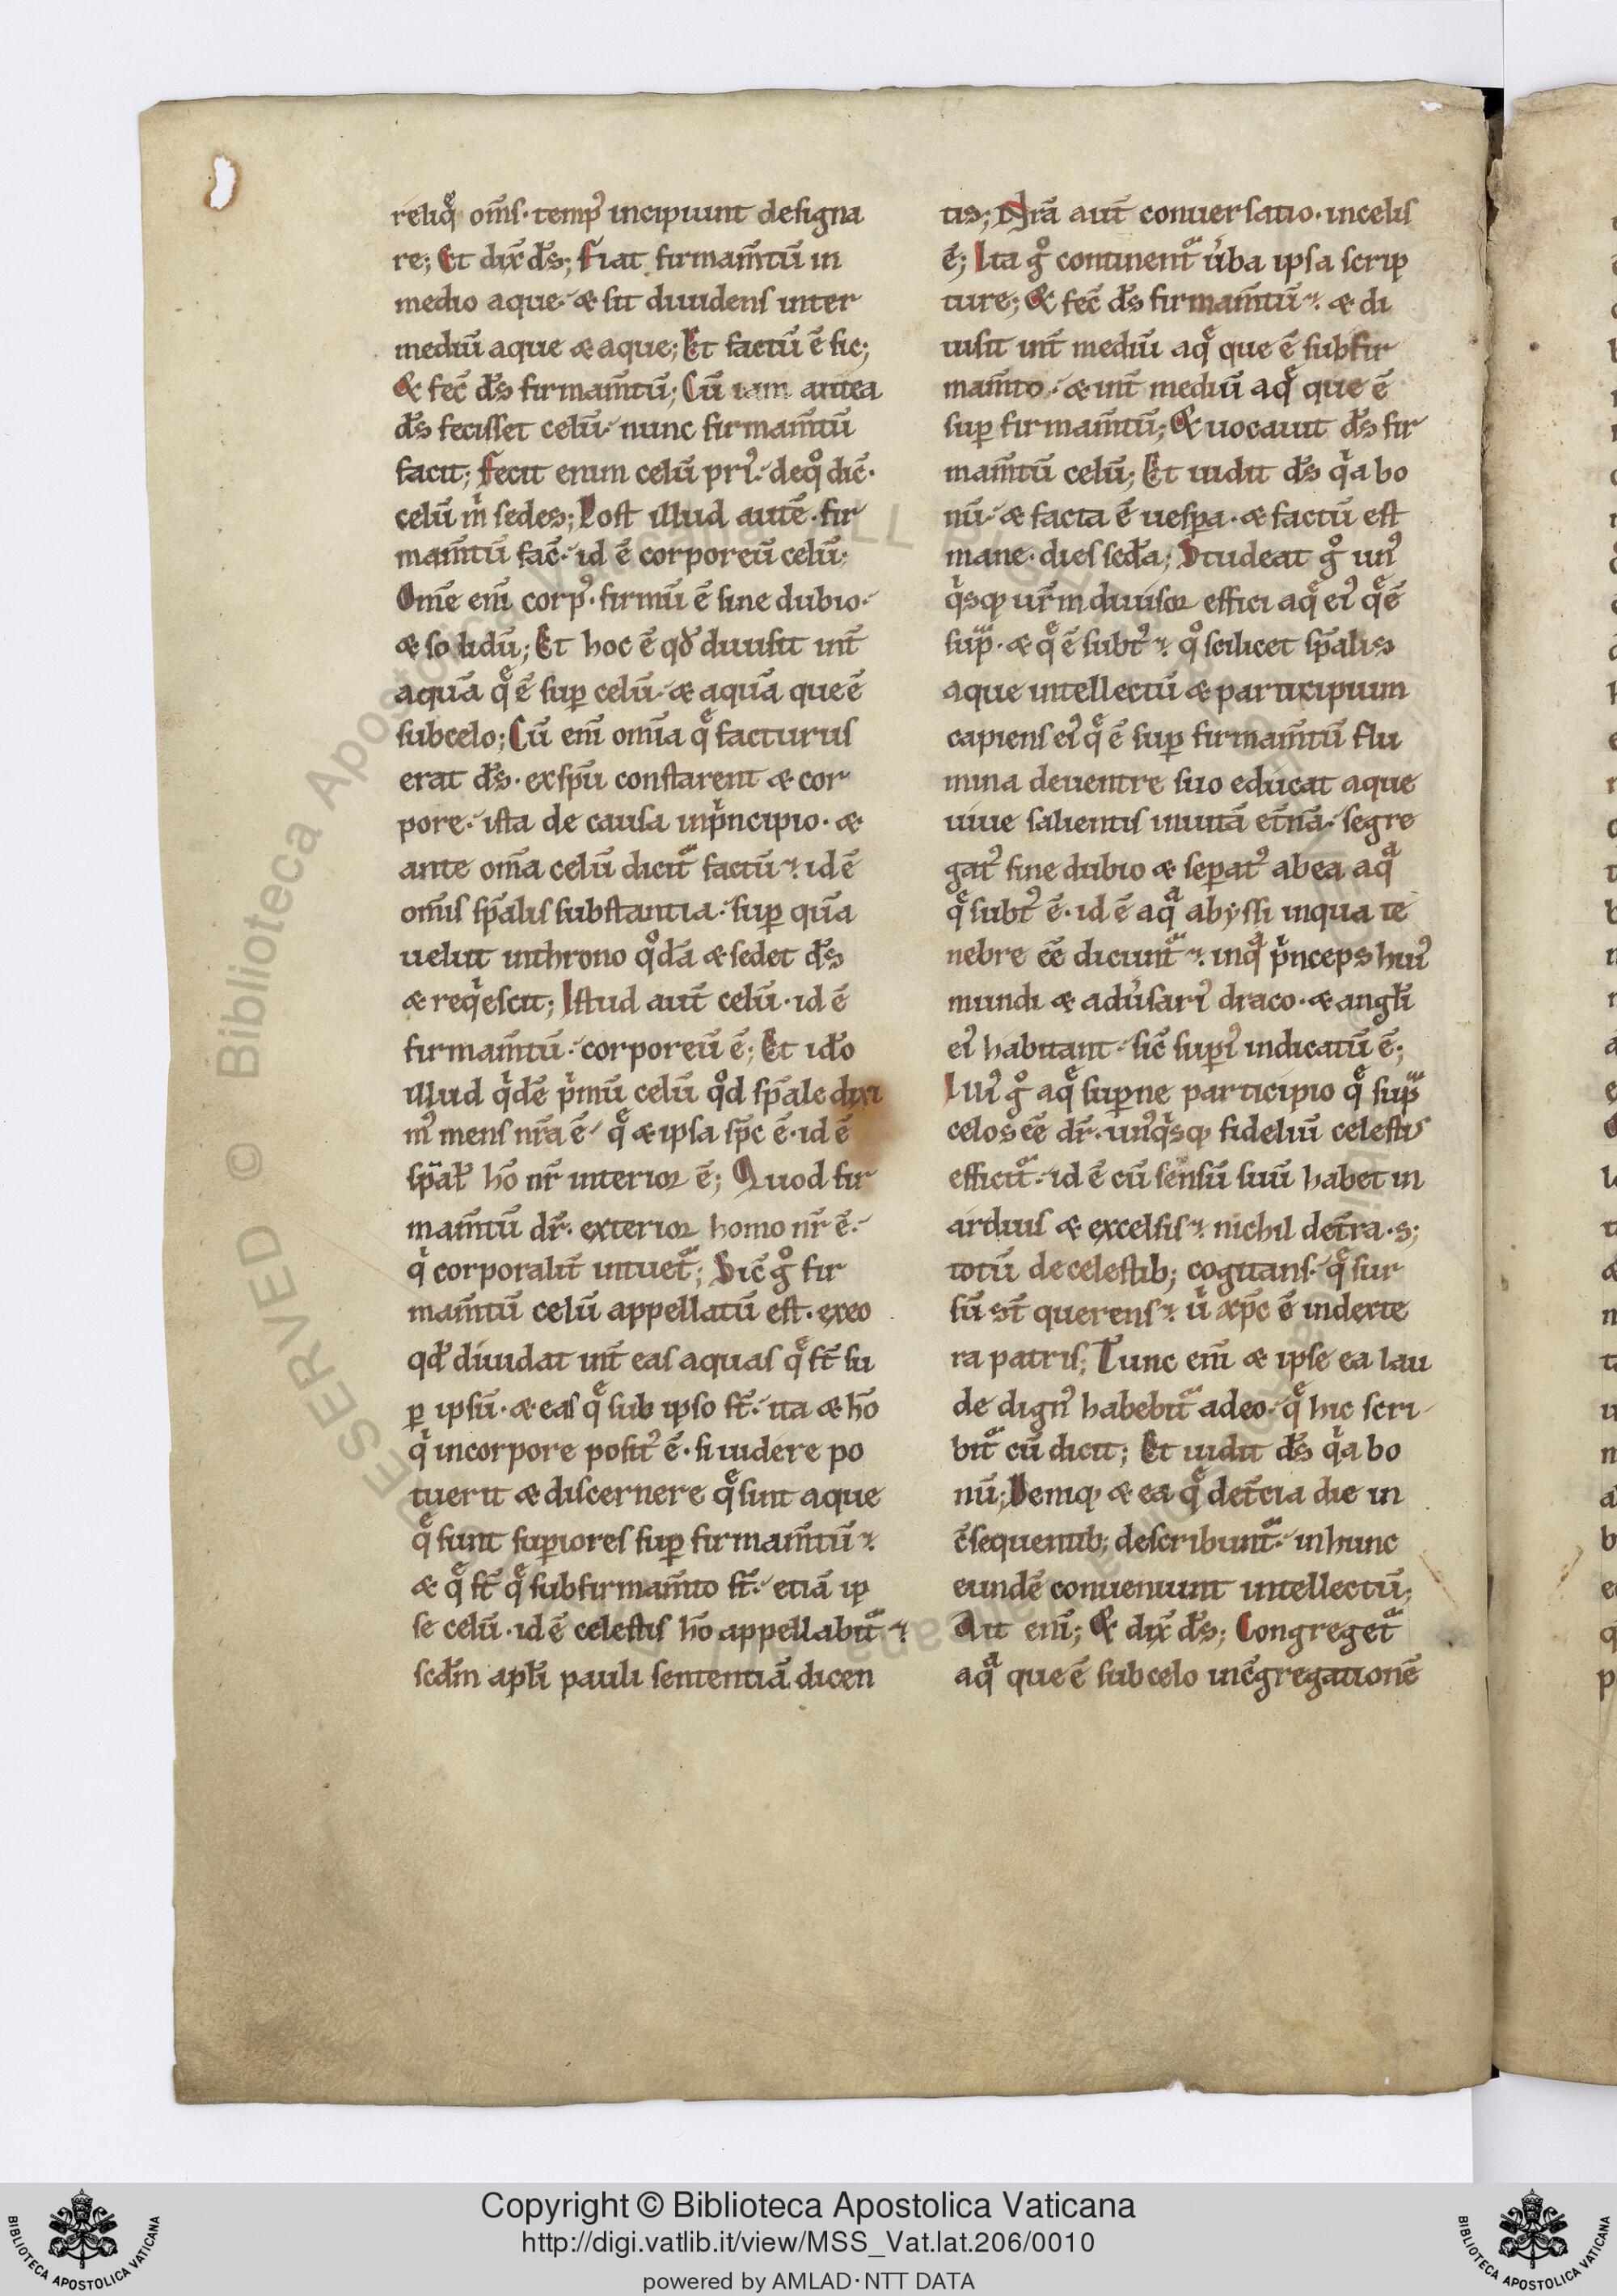 reliqͤ om̅s· temp᾽ incipiunt designa
re; Et dix̅ d̅s; Fiat firmam̅tu̅ in
medio aque· & sit diuidens inter
mediu̅ aque & aque; Et factu̅ e̅ sic;
& fec̅ d̅s firmam̅tu̅; Cu̅ iam antea
d̅s fecisset celu̅· nunc firmam̅tu̅
facit; Fecit enim celu̅ pri᾽· deqͦ dic̅·
celu̅ mͥ sedes; Post illud aute̅· fir
mam̅tu̅ fac̅· id e̅ corporeu̅ celu̅·
Om̅e em̅ corp᾽· firmu̅ e̅ sine dubio·
& solidu̅; Et hoc e̅ qd̅ diuisit int̅
aqua̅ qͤ e̅ sup celu̅· & aqua̅ que e̅
subcelo; Cu̅ em̅ om̅ia qͤ facturus
erat d̅s· exsp̅u constarent & cor
pore· ista de causa inpͥncipio· &
ante om̅a celu̅ dicitͬ factu̅· id e̅
om̅is sp̅alis substantia· sup qua̅
uelut inthrono qͦda̅ & sedet d̅s
& reqͥescit; Istud aut̅ celu̅· id e̅
firmam̅tu̅· corporeu̅ e̅; Et id̅o
illud qͥde̅ pͥmu̅ celu̅ qͦd sp̅ale dixi
m᾽ mens nr̅a e̅· qͤ & ipsa sp̅c e̅· id e̅
sp̅al̅ ho̅ nr̅ interior e̅; Quod fir
mam̅tu̅ dr̅· exterior homo nr̅ e̅·
qͥ corporalit̅ intuetͬ; Sic̅ gͦ fir
mam̅tu̅ celu̅ appellatu̅ est· exeo
qd̅ diuidat int̅ eas aquas qͤ st̅ su
p ipsu̅· & eas qͤ sub ipso st̅· ita & ho̅
qͥ incorpore posit᾽ e̅· si uidere po
tuerit & discernere qͤ sint aque
qͤ sunt supiores sup firmam̅tu̅·
& qͤ st̅ qͤ subfirmam̅to st̅· etia̅ ip
se celu̅· id e̅ celestis ho̅ appellabitͬ·
scd̅m apl̅i pauli sententia̅ dicen
tis; Nr̅a aut̅ conuersatio· incelis
e̅; Ita gͦ continentͬ u̅ba ipsa scrip
ture; & fec̅ d̅s firmam̅tu̅· & di
uisit int̅ mediu̅ aqͤ que e̅ subfir
mam̅to· & int̅ mediu̅ aqͤ que e̅
sup firmam̅tu̅; & uocauit d̅s fir
mam̅tu̅ celu̅; Et uidit d̅s qͥa bo
nu̅· & facta e̅ uespa· & factu̅ est
mane· dies scd̅a; Studeat gͦ un᾽
qͥsq; ur̅m diuisor effici aqͤ ei᾽ qͤ e̅
supͬ· & qͤ e̅ subt᾽· qͦ scilicet sp̅alis
aque intellectu̅ & participium
capiens ei᾽ qͤ e̅ sup firmam̅tu̅ flu
mina deuentre suo educat aque
uiue salientis inuita̅ et̅na̅· segre
gat᾽ sine dubio & sepat᾽ abea aqͣ
qͤ subt᾽ e̅· id e̅ aqͣ abyssi inqua te
nebre ee̅ dicuntͬ· inqͣ pͥnceps hui᾽
mundi & adu̅sari᾽ draco· & angl̅i
ei᾽ habitant· sic̅ supi᾽ indicatu̅ e̅;
Illi᾽ gͦ aqͤ supne participio qͤ supͬ
celos ee̅ dr̅· un᾽qͥsq; fideliu̅ celestis
efficitͬ· id e̅ cu̅ sensu̅ suu̅ habet in
arduis & excelsis· nichil det̅ra· s;
totu̅ decelestib; cogitans· qͤ sur
su̅ st̅ querens· uͥ xp̅c e̅ indexte
ra patris; Tunc em̅ & ipse ea lau
de dign᾽ habebitͬ adeo· qͤ hic scri
bitͬ cu̅ dicit; Et uidit d̅s qͥa bo
nu̅; Deniq; & ea qͤ det̅cia die in
c̅sequentib; describuntͬ· inhunc
eunde̅ conueniunt intellectu̅;
Ait eni̅; & dix̅ d̅s; Congregetͬ
aqͣ que e̅ subcelo inc̅gregatione̅
Copyright © Biblioteca Apostolica Vaticana
http://digi.vatlib.it/view/MSS_Vat.lat.206/0010
powered by AMLAD·NTT DATA
BIBLIOTECA APOSTOLICA VATICANA
BIBLIOTECA APOSTOLICA VATICANA